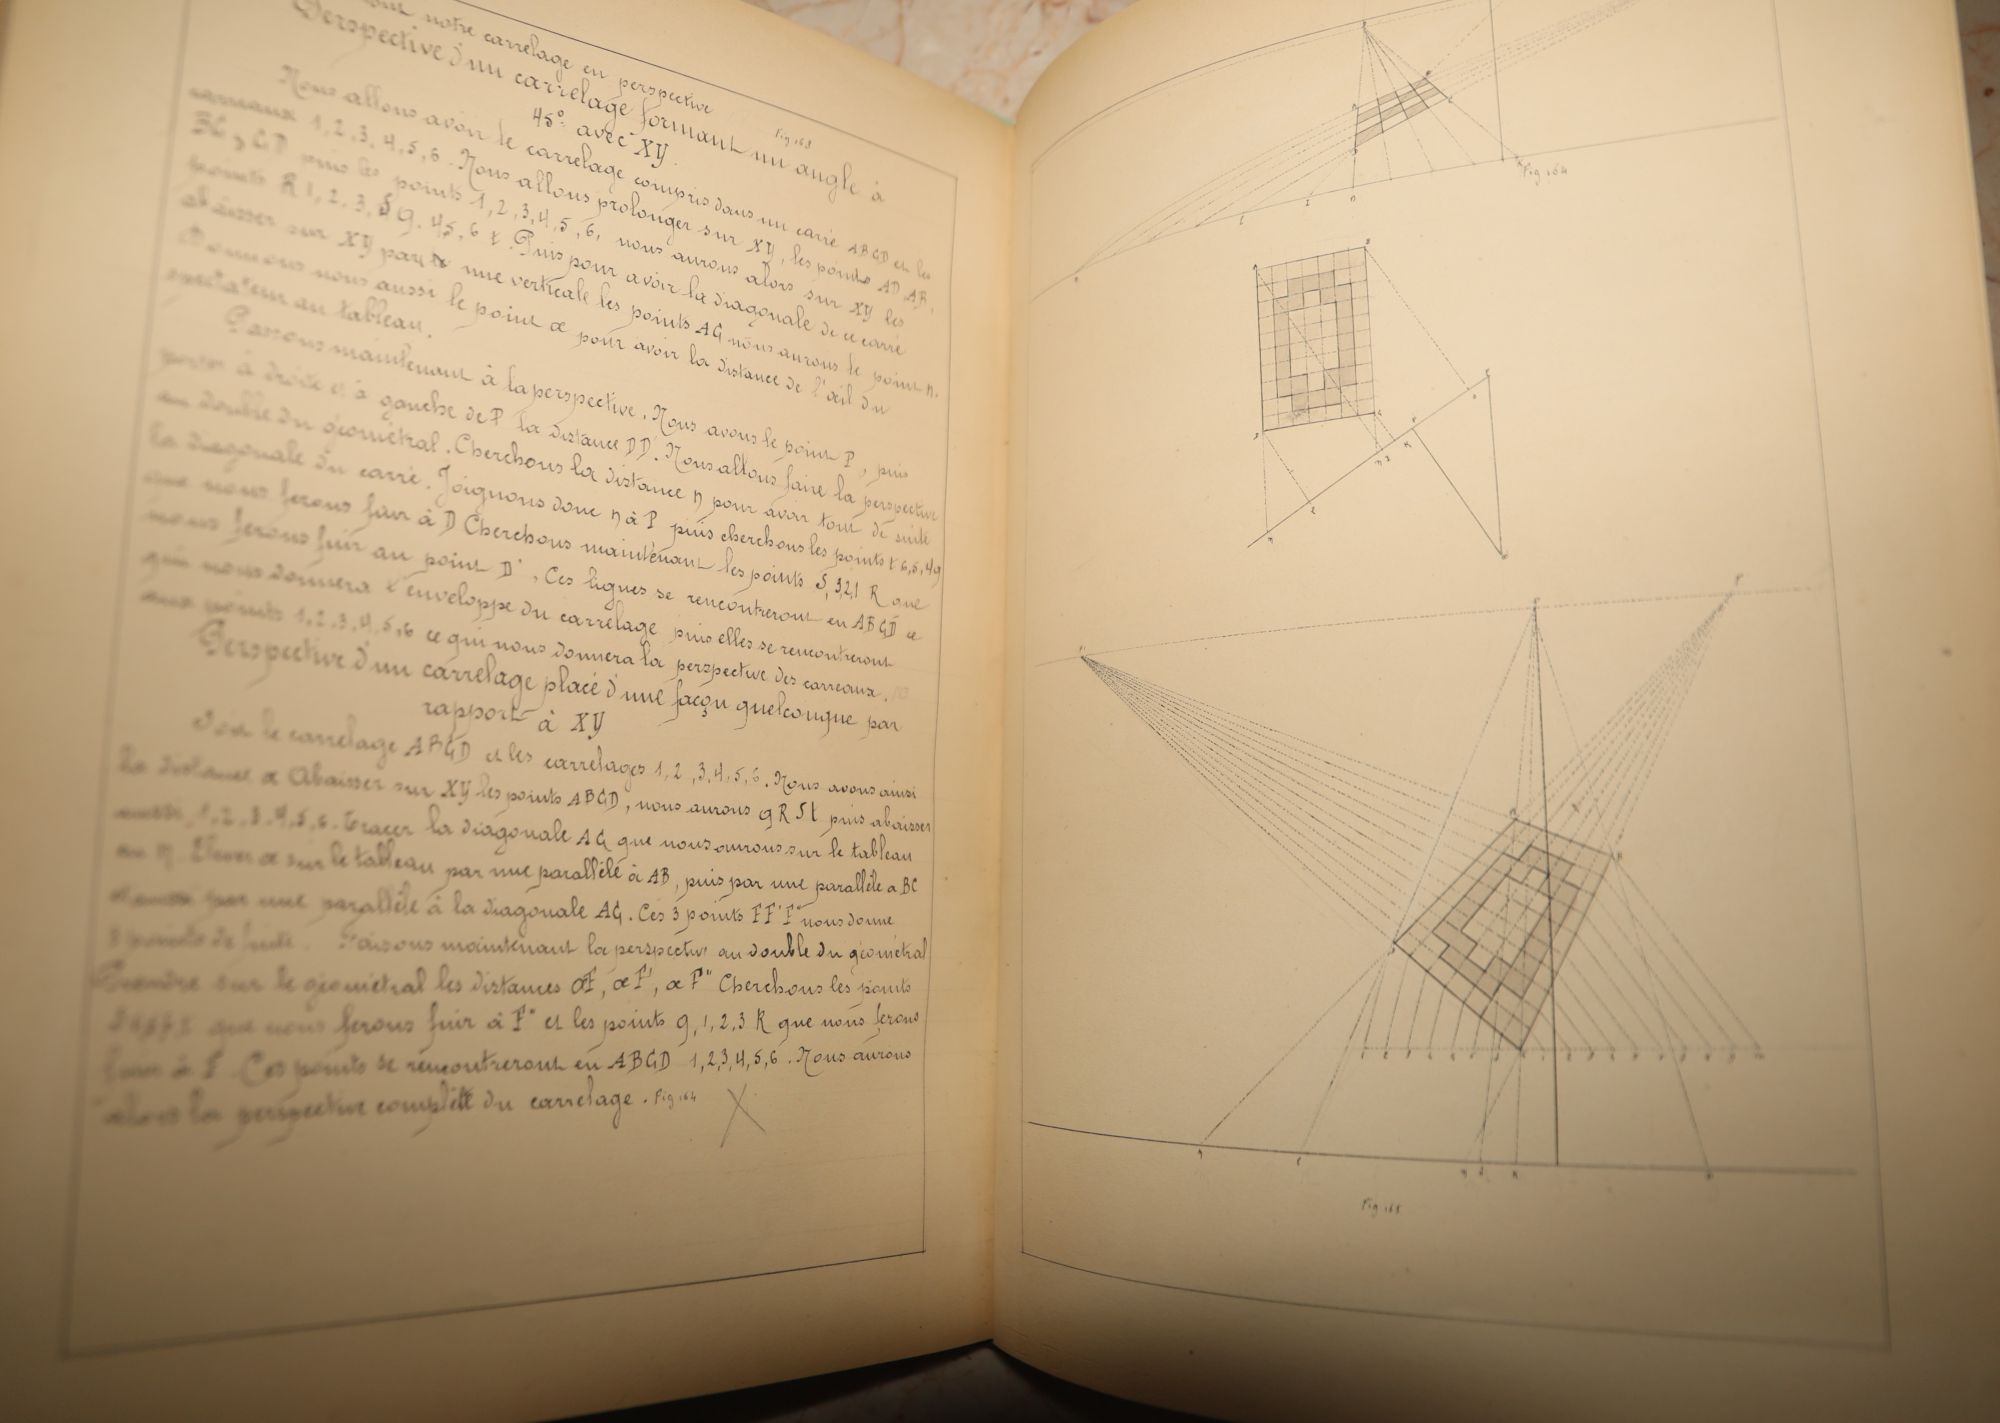 notre carrelage en perspective Fig 163
Perspective d'un carrelage formant un angle à
45° avec XY.
Nous allons avoir le carrelage compris dans un carré ABGD et les
carreaux 1, 2, 3, 4, 5, 6. Nous allons prolonger sur XY, les points AD, AB,
GD puis les points 1, 2, 3, 4, 5, 6, nous aurons alors sur XY les
points R 1, 2, 3, S g. 45, 6 t. Puis pour avoir la diagonale de ce carré
abaisser sur XY par une verticale les points AG nous aurons le point n.
Donnons nous aussi le point œ pour avoir la distance de l'œil du
spectateur au tableau.
Passons maintenant à la perspective. Nous avons le point P, puis
portons à droite et à gauche de P la distance DD'. Nous allons faire la perspective
au double du géométral. Cherchons la distance n pour avoir tout de suite
la diagonale du carré. Joignons donc n à P puis cherchons les points t 6, 5, 4 g
que nous ferons fuir à D Cherchons maintenant les points S, 3, 2, 1 R que
nous ferons fuir au point D'. Ces lignes se rencontreront en ABGD ce
qui nous donnera l'enveloppe du carrelage puis elles se rencontreront
aux points 1, 2, 3, 4, 5, 6 ce qui nous donnera la perspective des carreaux.
Perspective d'un carrelage placé d'une façon quelconque par
rapport à XY
Soit le carrelage ABGD et les carrelages 1, 2, 3, 4, 5, 6. Nous avons ainsi
la distance œ Abaisser sur XY les points ABGD, nous aurons g R S t puis abaisser
aussi, 1, 2, 3, 4, 5, 6. Tracer la diagonale AG que nous aurons sur le tableau
en n. Elever œ sur le tableau par une parallèle à AB, puis par une parallèle a BC
par une parallèle à la diagonale AG. Ces 3 points F F' F" nous donne
3 points de fuite. Faisons maintenant la perspective au double du géométral
Prendre sur le géométral les distances œF, œF', œF" Cherchons les points
que nous ferons fuir à F" et les points g, 1, 2, 3 R que nous ferons
fuir à F. Ces points se rencontreront en ABGD 1, 2, 3, 4, 5, 6. Nous aurons
alors la perspective complète du carrelage. Fig 164
Fig 164
Fig 165